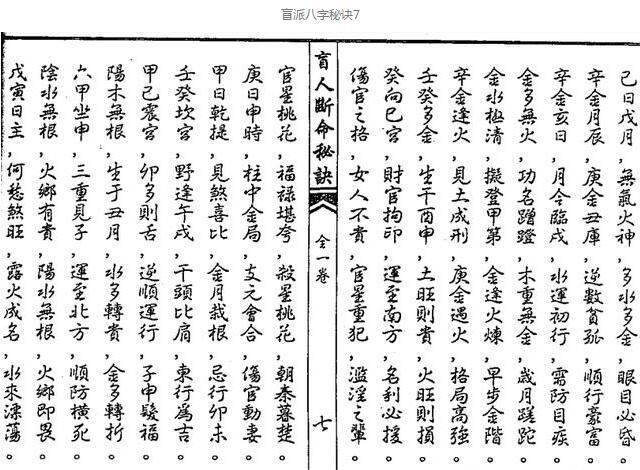 盲派八字秘诀7
己日戊月，無氣火神，多水多金，眼目必昏。
辛金月辰，庚金丑庫，逆數貧孤，順行豪富。
辛金亥日，月令臨戌，水運初行，需防目疾。
金多無火，功名蹭蹬，木重無金，歲月蹉跎。
金水極清，擬登甲第，金逢火煉，早步金階。
辛金逢火，見土成刑，庚金遇火，格局高強。
壬癸多金，生于酉申，土旺則貴，火旺則損。
癸向巳宮，財官拘印，運至南方，名利必援。
傷官之格，女人不貴，官星重犯，濫淫之輩。
盲人斷命秘訣 全一卷 七
官星桃花，福祿堪夸，殺星桃花，朝秦暮楚。
庚日申時，柱中金局，支元會合，傷官動妻。
甲日乾提，見煞喜比，金月栽根，忌行卯未。
壬癸坎宮，野逢午戌，干頭比肩，東行為吉。
甲己震宮，卯多則舌，逆順運行，子申髮福。
陽木無根，生于丑月，水多轉貴，金多轉折。
六甲坐申，三重見子，運至北方，順防橫死。
陰水無根，火鄉有貴，陽水無根，火鄉即畏。
戊寅日主，何愁煞旺，露火成名，水來漂蕩。